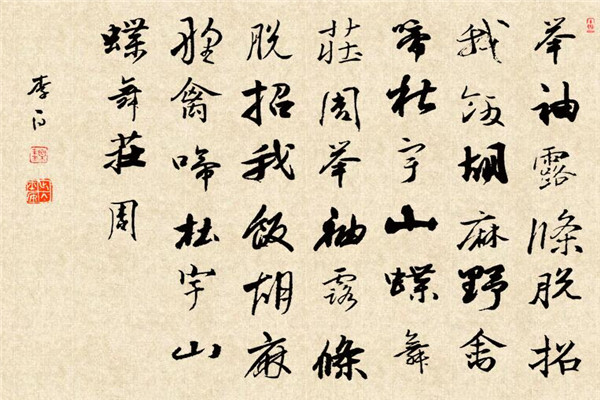 举袖露條脱招
我飯胡麻野禽
啼杜宇山蝶舞
莊周举袖露條
脱招我飯胡麻
野禽啼杜宇山
蝶舞莊周
李